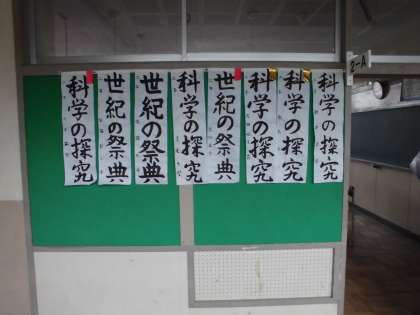 科学の探究
世紀の祭典
世紀の祭典
科学の探究
世紀の祭典
科学の探究
科学の探究
科学の探究
2-A